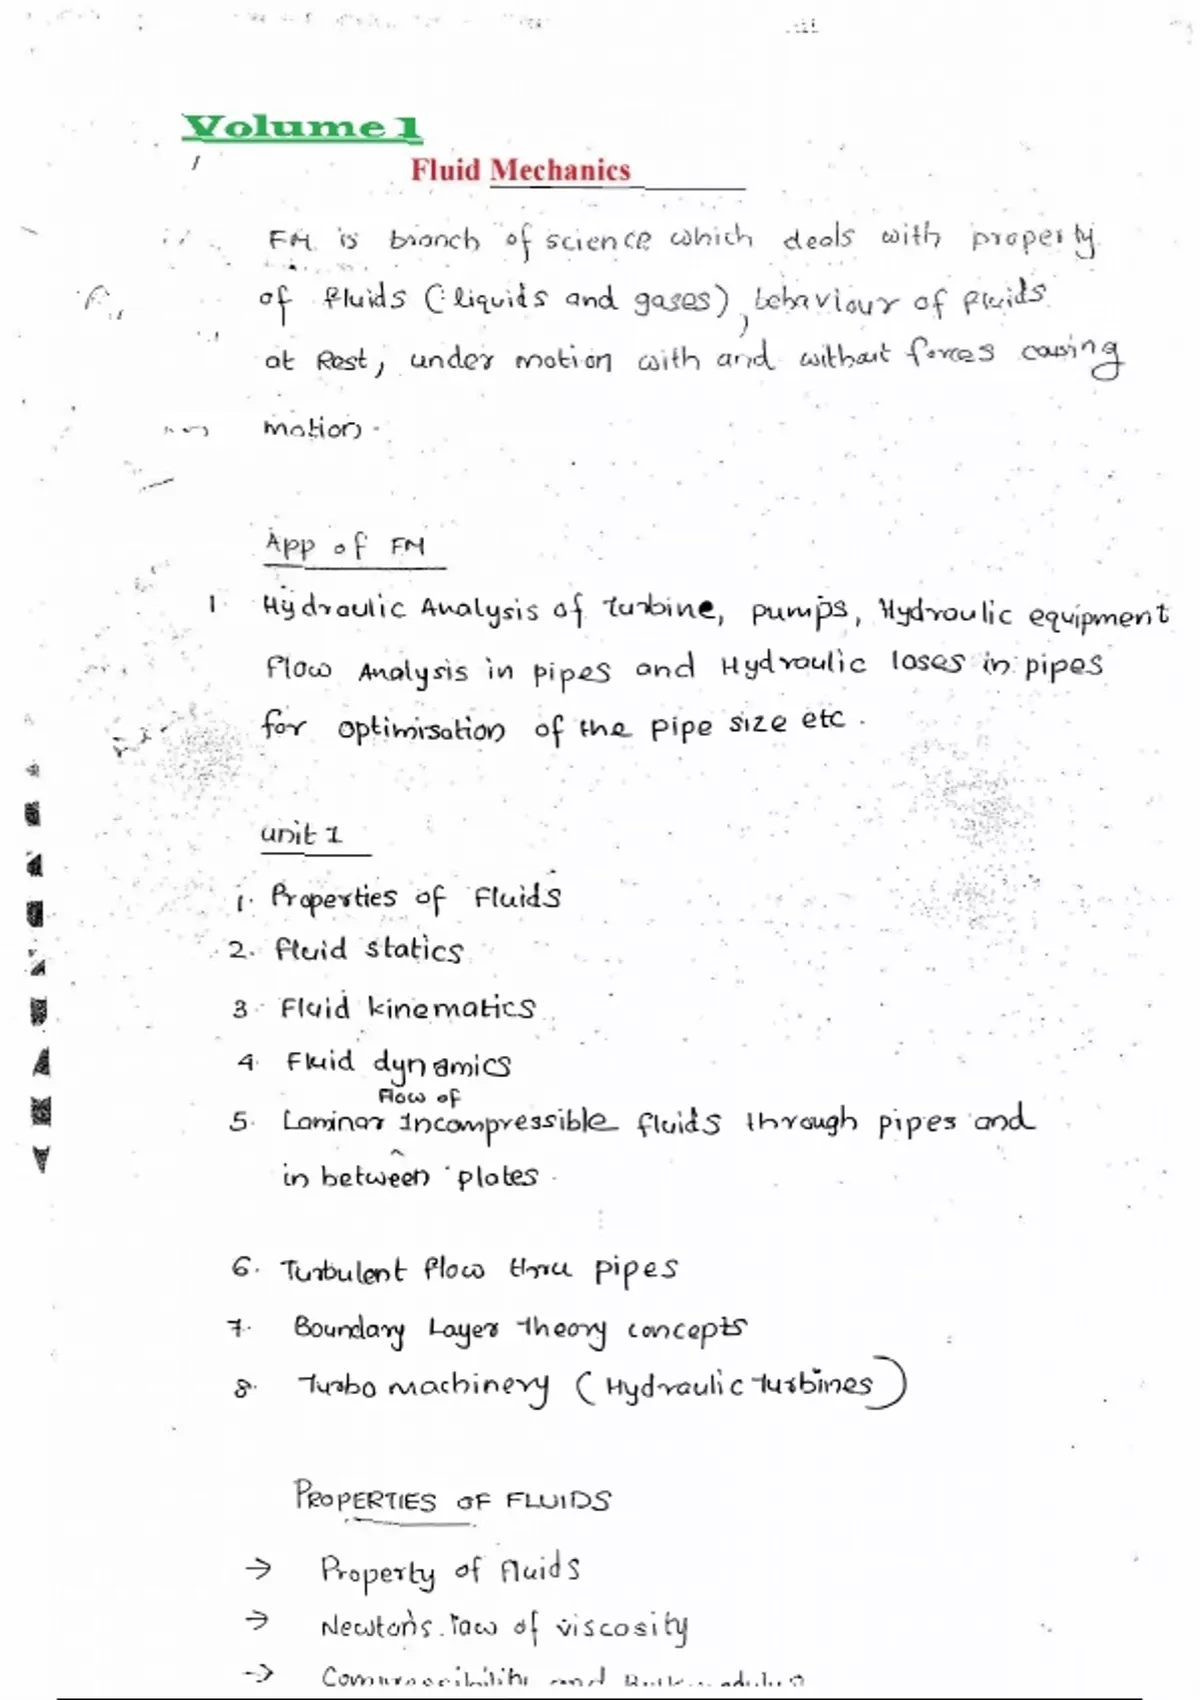 Volume 1
Fluid Mechanics
FM is branch of science which deals with property
of fluids (liquids and gases), behaviour of fluids
at Rest, under motion with and without forces causing
motion.
App of FM
1. Hydraulic Analysis of turbine, pumps, Hydraulic equipment
flow Analysis in pipes and Hydraulic loses in pipes
for optimisation of the pipe size etc.
unit 1
1. Properties of Fluids
2. fluid statics
3. Fluid kinematics
4. Fluid dynamics
flow of
5. Laminar Incompressible fluids through pipes and
in between plates.
6. Turbulent flow thru pipes
7. Boundary Layer theory concepts
8. Turbo machinery (Hydraulic turbines)
PROPERTIES OF FLUIDS
→ Property of fluids
→ Newton's law of viscosity
→ Compressibility and Bulk modulus